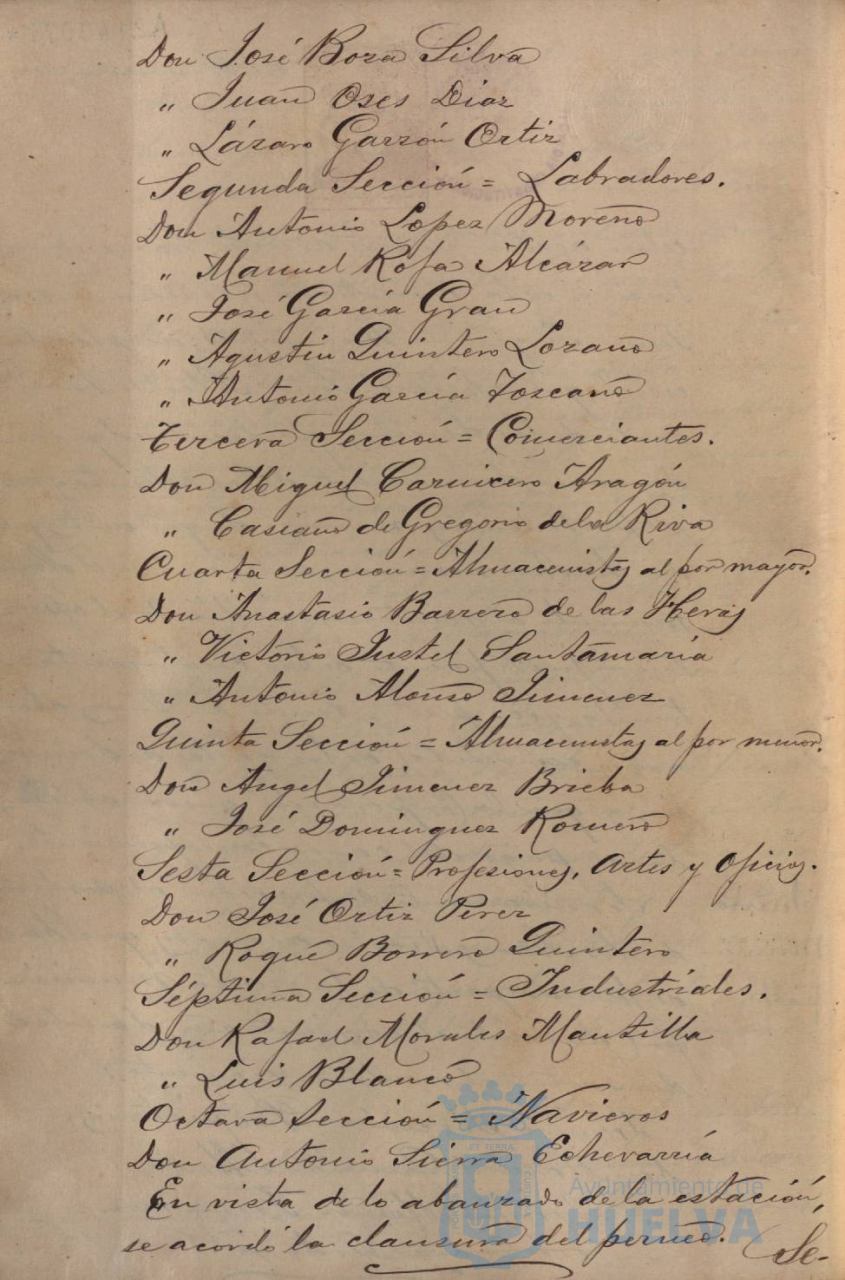 Don José Boza Silva
" Juan Oses Diaz
" Lázaro Garzón Ortiz
Segunda Sección = Labradores.
Don Antonio Lopez Moreno
" Manuel Rofa Alcázar
" José García Gran
" Agustin Quintero Lozano
" Antonio García Toscano
Tercera Sección = Comerciantes.
Don Miguel Carnicero Aragón
" Casiano de Gregorio de la Riva
Cuarta Sección = Almacenistas al por mayor.
Don Anastasio Barrero de las Heras
" Victorio Justel Santamaría
" Antonio Alonso Jimenez
Quinta Sección = Almacenistas al por menor.
Don Angel Jimenez Brieba
" José Dominguez Romero
Sesta Sección = Profesiones, Artes y Oficios.
Don José Ortiz Perez
" Roque Borrero Quintero
Séptima Sección = Industriales.
Don Rafael Morales Mantilla
" Luis Blanco
Octava Sección = Navieros
Don Antonio Sierra Echevarría
En vista de lo abanzado de la estación,
se acordó la clausura del perneo. Se-
Ayuntamiento de
HUELVA